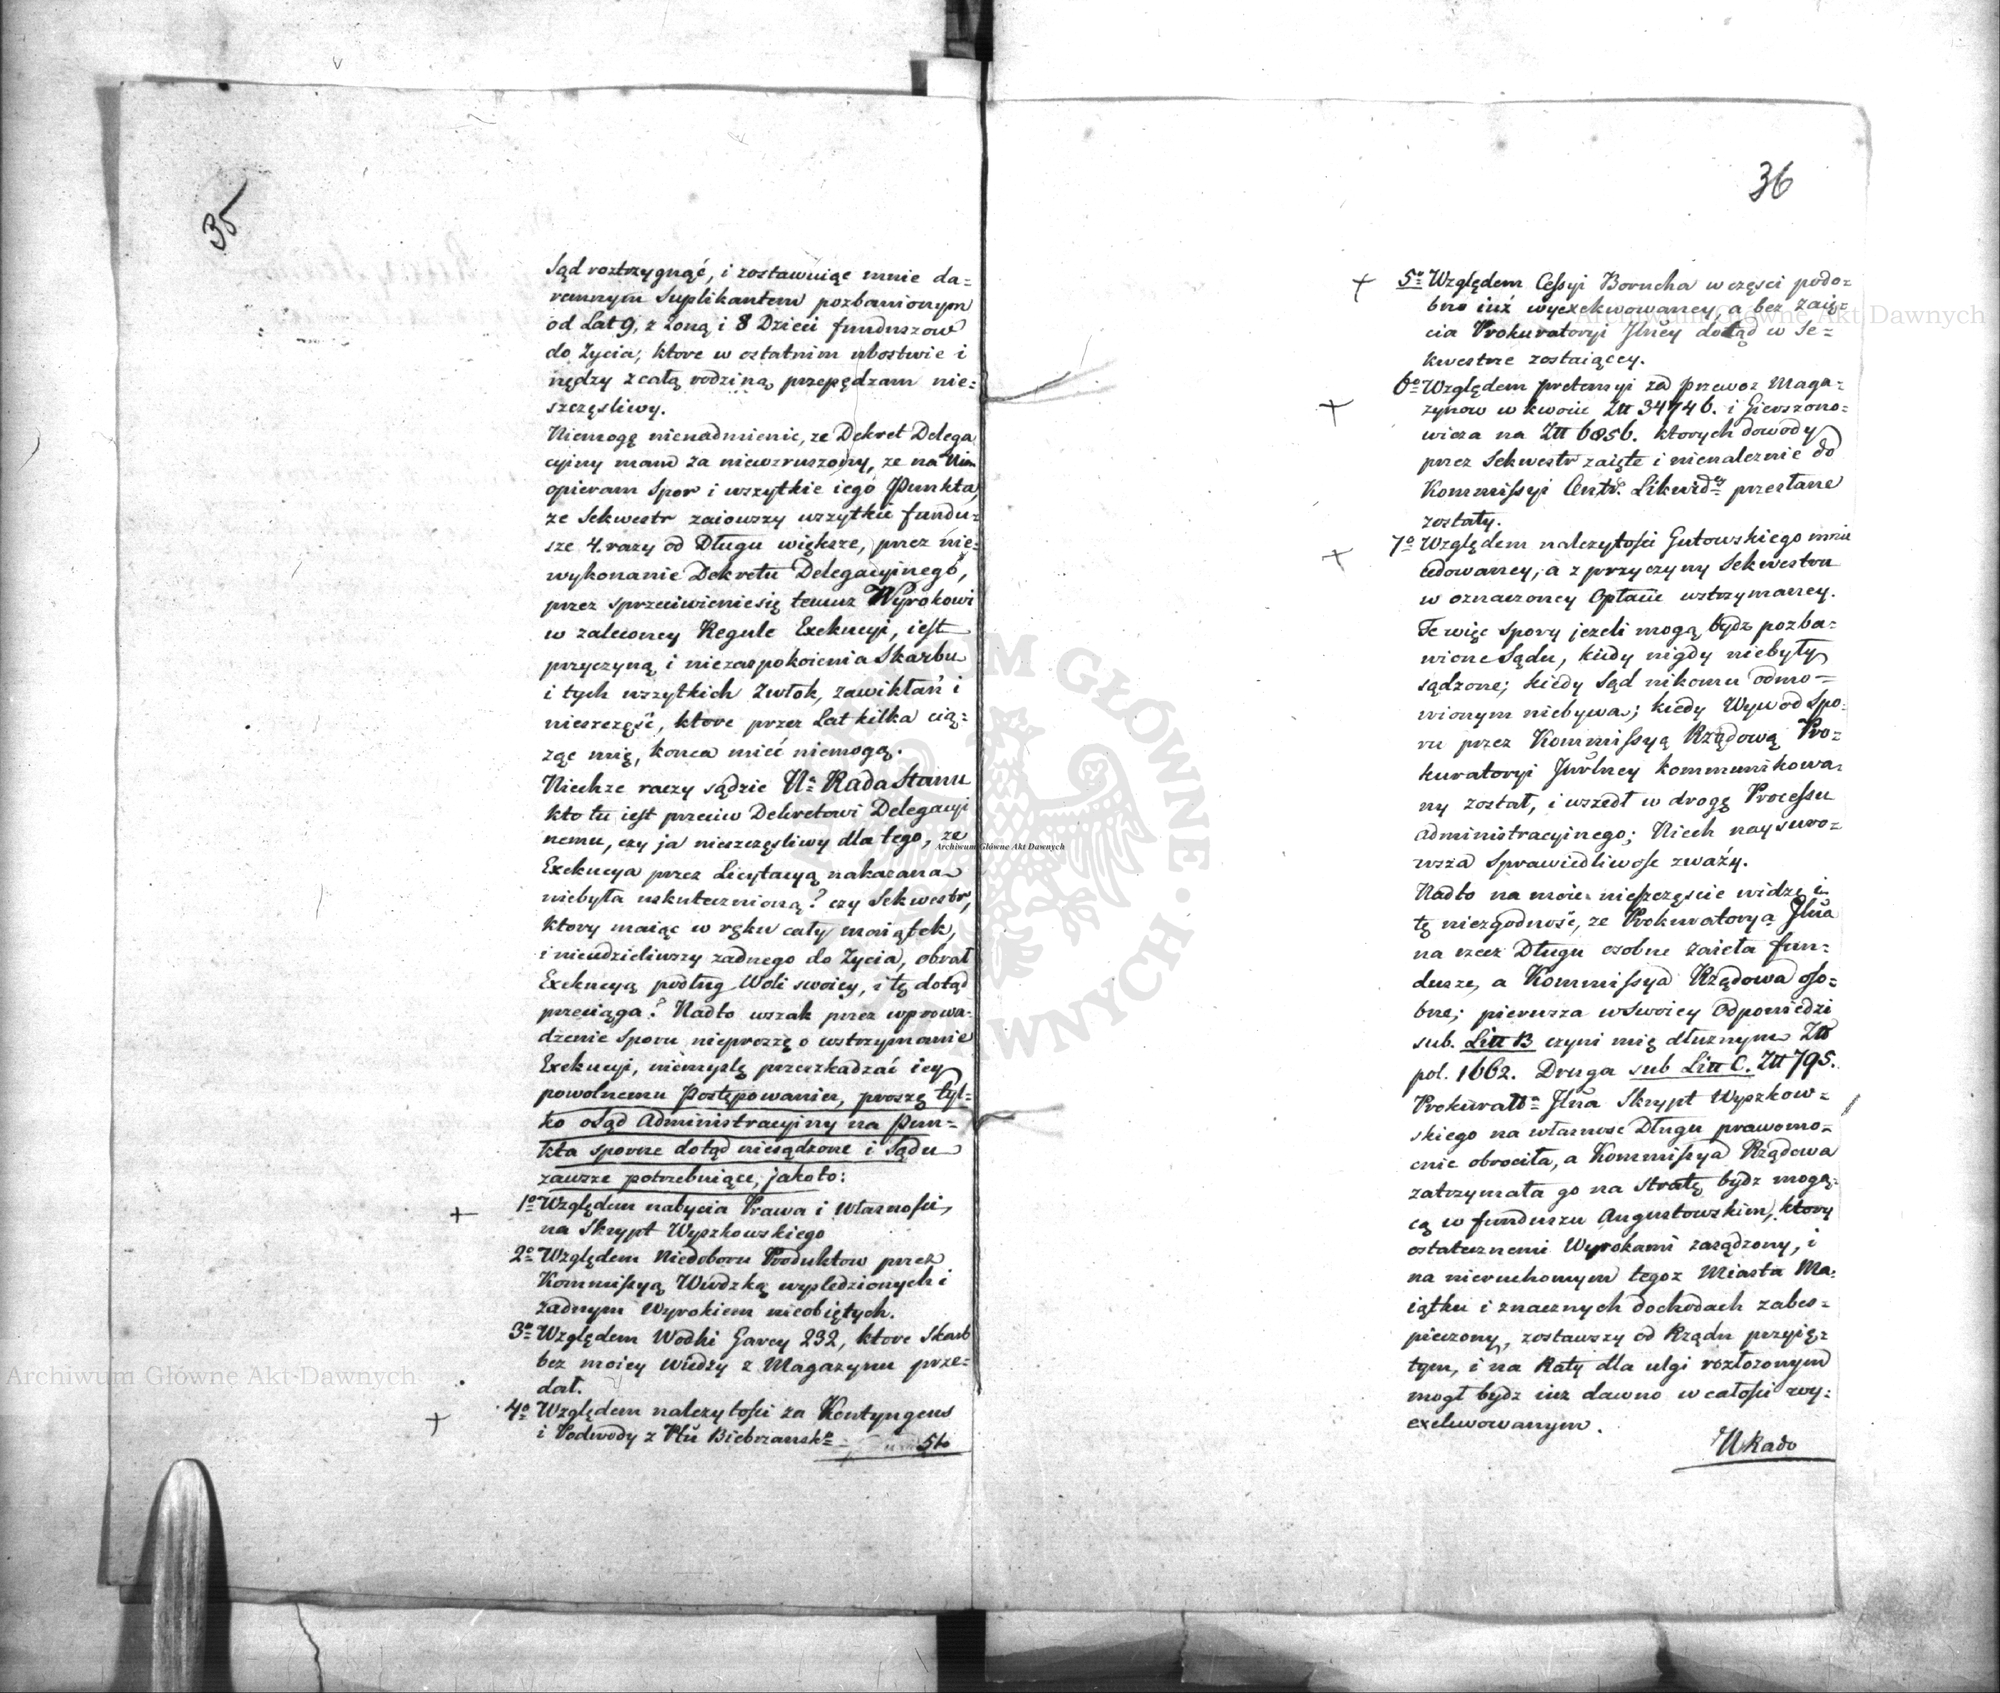 35
Sąd roztrzygnąć, i zostawuiąc mnie da-
remnym Suplikantem pozbawionym
od Lat 9, z Zoną i 8 Dzieci funduszow
do Zycia, ktore w ostatnim ubostwie i
nędzy z całą rodziną przepędzam nie-
szczęsliwy.
Niemogę nienadmienic, ze Dekret Delega
cyiny mam za niewzruszony, ze na Nim
opieram Spor i wszytkie iego Punkta,
ze Sekwestr zaiowszy wszytkie fundu-
sze 4. razy od Długu większe, przez nie-
wykonanie Dekretu Delegacyinego,
przez sprzeciwieniesię temuz Wyrokowi
w zaleconey Regule Exekucyi, iest
przyczyną i niezaspokoienia Skarbu
i tych wszytkich Zwłok, zawikłań i
nieszczęść, ktore przez Lat kilka cią-
żąc mię, konca mieć niemogą.
Niechze raczy sądzic N. Rada Stanu
kto tu iest przeciw Dekretowi Delegacyi
nemu, czy ja nieszczęsliwy dla tego, ze
Exekucya przez Licytacyą nakazana
niebyła uskutecznioną? czy Sekwestr,
ktory maiąc w ręku cały maiątek,
i nieudzieliwszy zadnego do Zycia, obrał
Exekucyą podług Woli swoiey, i tę dotąd
przeciąga? Nadto wszak przez wprowa-
dzenie Sporu nieproszę o wstrzymanie
Exekucyi, niemyslę przeszkadzać iey
powolnemu Postępowaniu, proszę tyl-
ko o Sąd Administracyiny na Pun-
kta sporne dotąd niesądzone i Sądu
zawsze potrzebuiące, jakoto:
+ 1o Względem nabycia Prawa i Własnosci,
na Skrypt Wyszkowskiego
2o Względem Niedoboru Produktow przez
Kommissyą Wwdzką wysledzionych i
żadnym Wyrokiem nieobiętych.
3o Względem Wodki Garcy 232, ktore Skarb
bez moiey wiedzy z Magazynu prze-
dał.
+ 4o Względem nalezytosci za Kontyngens
i Podwody z Ptu Biebrzansko
5to
36
+ 5o Względem Cessyi Borucha w częsci podo-
bno iuż wyexekwowaney, a bez zaię-
cia Prokuratoryi Jlney dotąd w Se-
kwestrze zostaiącey.
+ 6o Względem pretensyi za przewoz Maga-
zynow w kwocie Ztt 34746. i Gierszono-
wicza na Ztt 6856. ktorych dowody
przez Sekwestr zaięte i nienaleznie do
Kommissyi Centr. Likwidey przesłane
zostały.
+ 7o Względem nalezytosci Gutowskiego mnie
cedowaney, a z przyczyny Sekwestru
w oznaczoney Opłacie wstrzymaney.
Te więc spory jezeli mogą bydz pozba-
wione Sądu, kiedy nigdy niebyły
sądzone; kiedy Sąd nikomu odmo-
wionym niebywa; kiedy Wywod Spo-
ru przez Kommissyą Rządową Pro-
kuratoryi Jlney kommunikowa-
ny został, i wszedł w drogę Processu
administracyinego; Niech naysuro-
wsza Sprawiedliwosc zważy.
Nadto na moie nieszczęscie widzę i
tę niezgodnosć, ze Prokuratorya Jlna
na rzecz Długu osobne zaieła fun-
dusze, a Kommissya Rządowa oso-
bne; pierwsza w Swoiey Odpowiedzi
sub. Litt B czyni mię dłuznym Ztt
pol. 1662. Druga sub Litt C. Ztt 795.
Prokuratta Jlna Skrypt Wyszkow-
skiego na własnosc Długu prawomo-
cnie obrociła, a Kommissya Rządowa
zatrzymała go na Stratę bydz mogą-
cą w funduszu Augustowskim, ktory
ostatecznemi Wyrokami zasądzony, i
na nieruchomym tegoz Miasta Ma-
iątku i znacznych dochodach zabes-
pieczony, zostawszy od Rządu przyię-
tym, i na Raty dla ulgi rozłozonym
mogł bydz iuz dawno w całosci wy-
exekwowanym.
Archiwum Główne Akt Dawnych